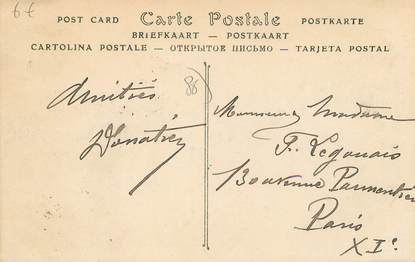 6€
POST CARD Carte Postale POSTKARTE
BRIEFKAART — POSTKAART
CARTOLINA POSTALE — ОТКРЫТОЕ ПИСЬМО — TARJETA POSTAL
86
Amitiés
Donatien
Monsieur Madame
F. Legouais
130 avenue Parmentier
Paris
XIe